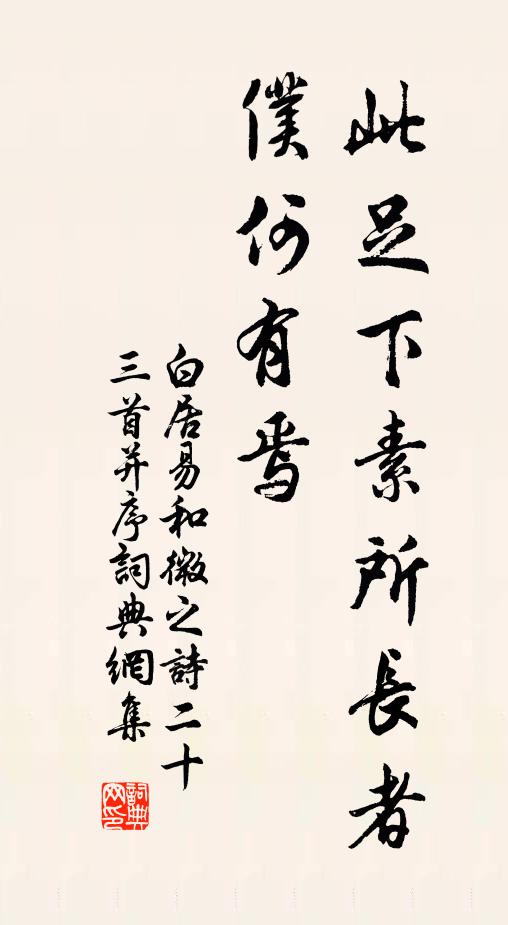 此足下素所長者
僕何有焉
白居易和微之詩二十
三首并序詞典網集
詞典网印